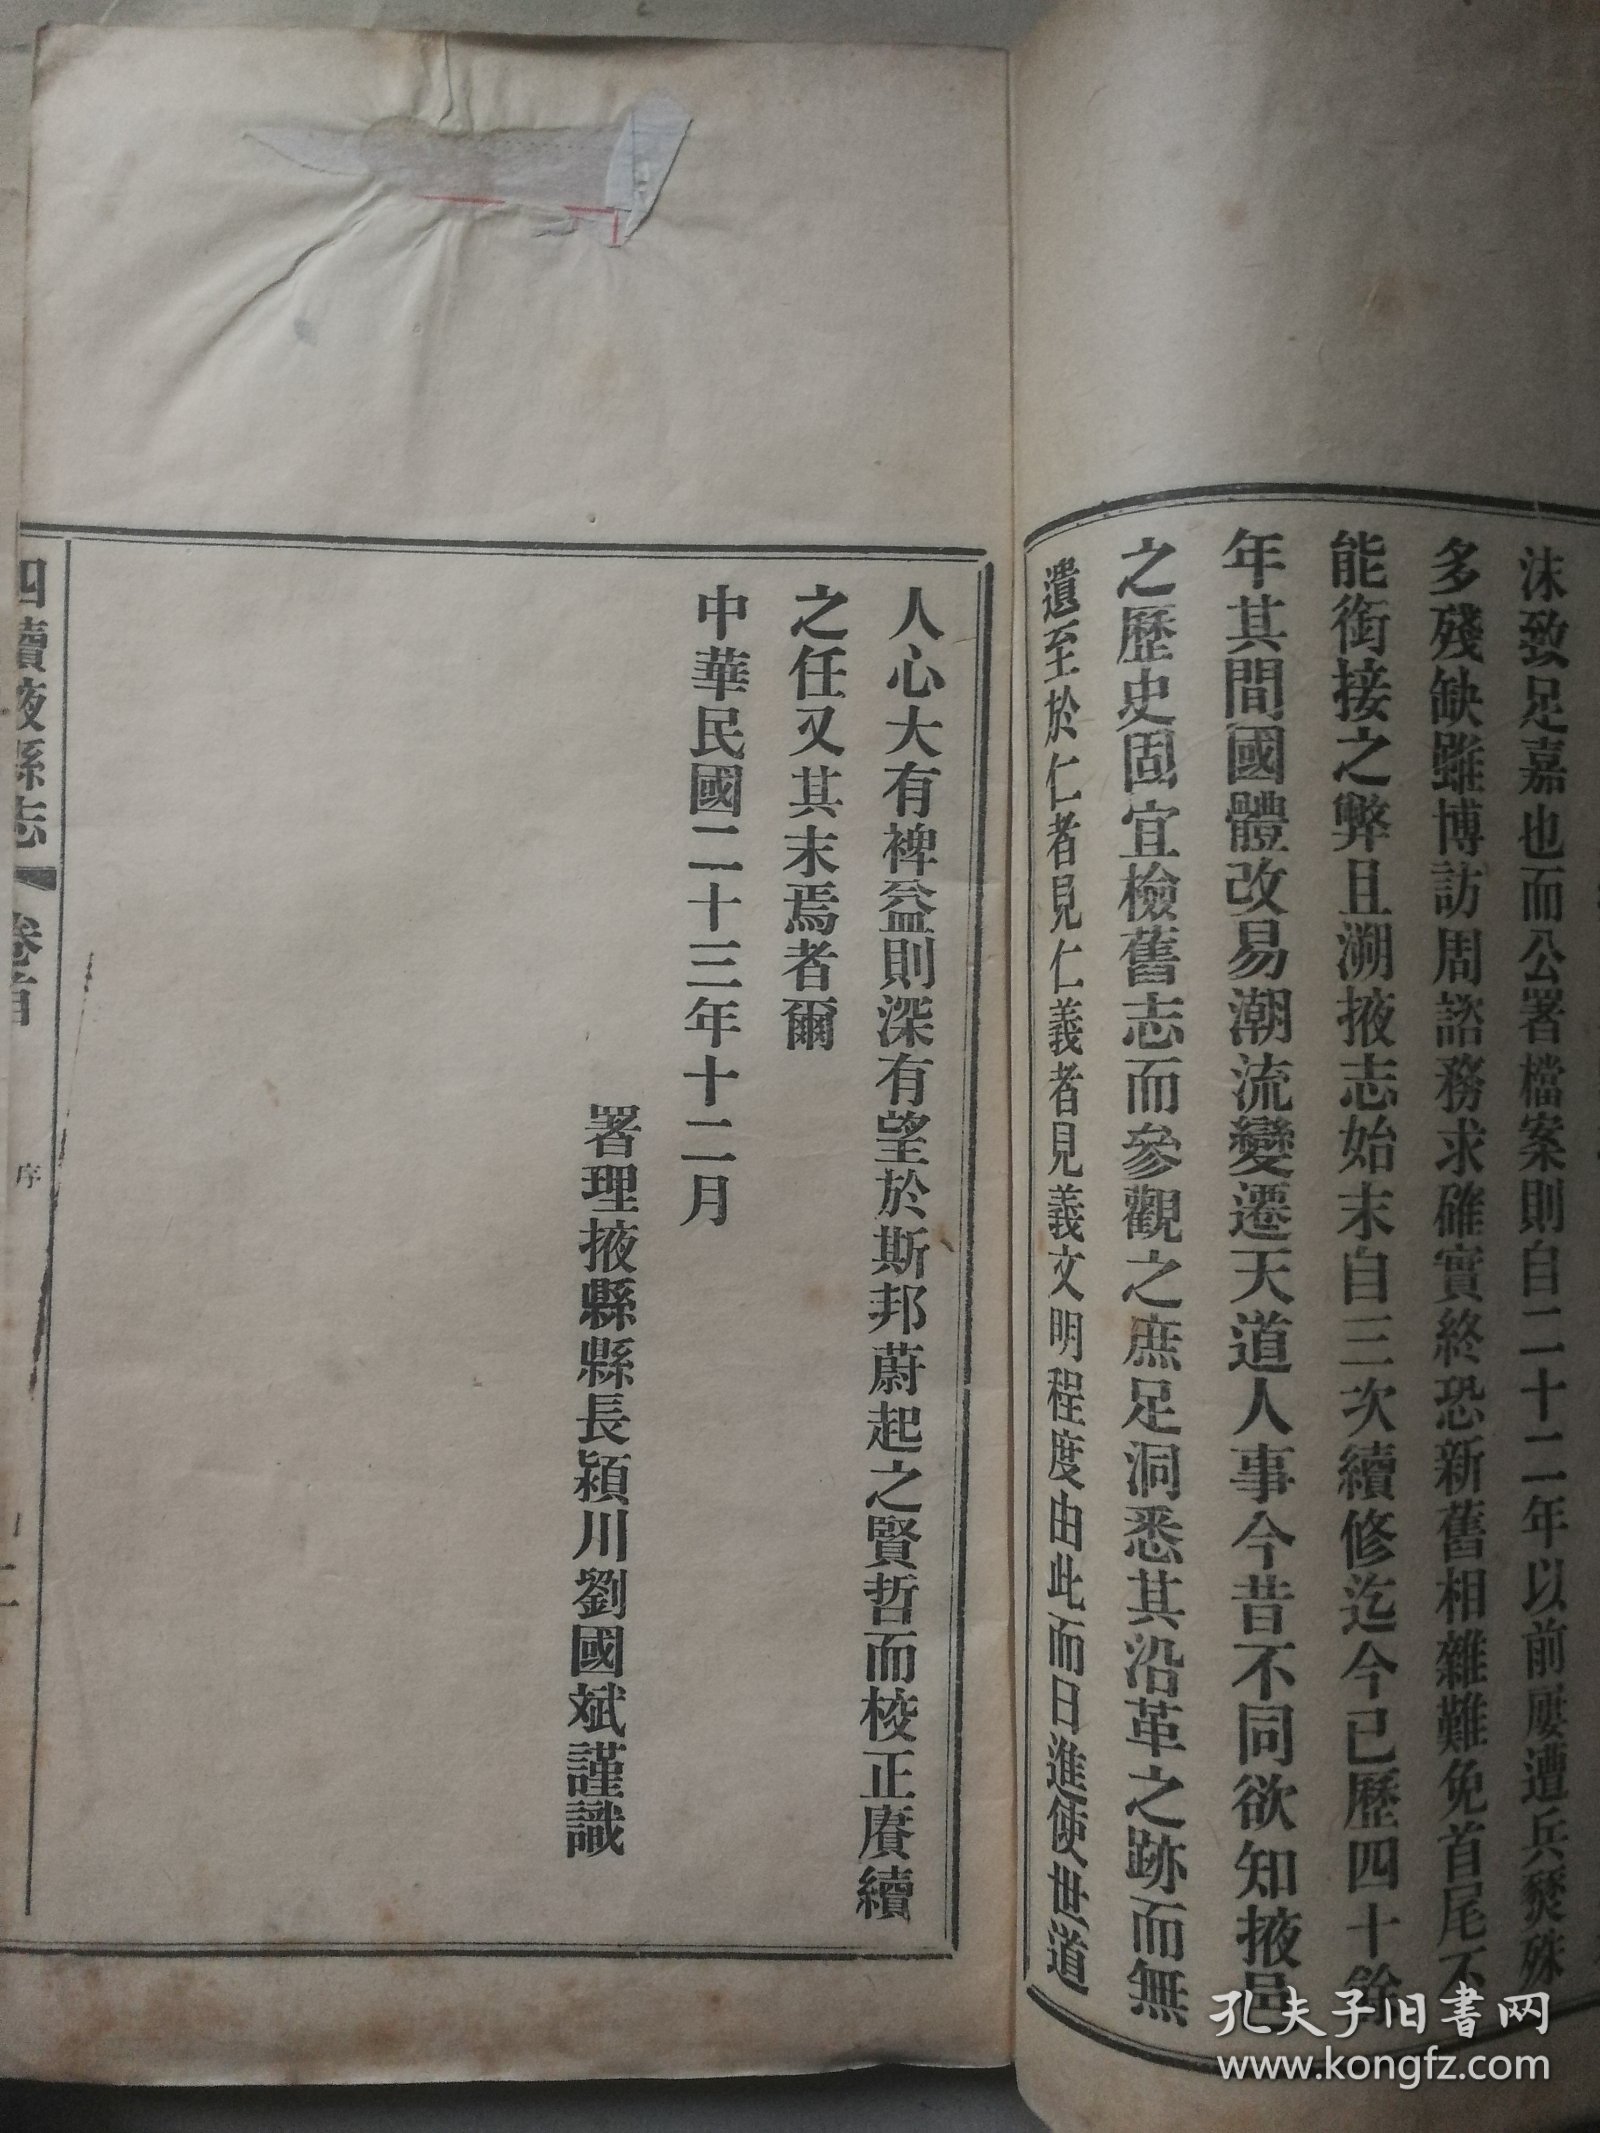 沫致足嘉也而公署檔案則自二十二年以前屢遭兵燹殊
多殘缺雖博訪周諮務求確實終恐新舊相雜難免首尾不
能銜接之弊且溯掖志始末自三次續修迄今已歷四十餘
年其間國體改易潮流變遷天道人事今昔不同欲知掖邑
之歷史固宜檢舊志而參觀之庶足洞悉其沿革之跡而無
遺至於仁者見仁義者見義文明程度由此而日進使世道
人心大有裨益則深有望於斯邦蔚起之賢哲而校正賡續
之任又其末焉者爾
中華民國二十三年十二月
署理掖縣縣長潁川劉國斌謹識
四續掖縣志 卷首 序 二
孔夫子旧书网
www.kongfz.com